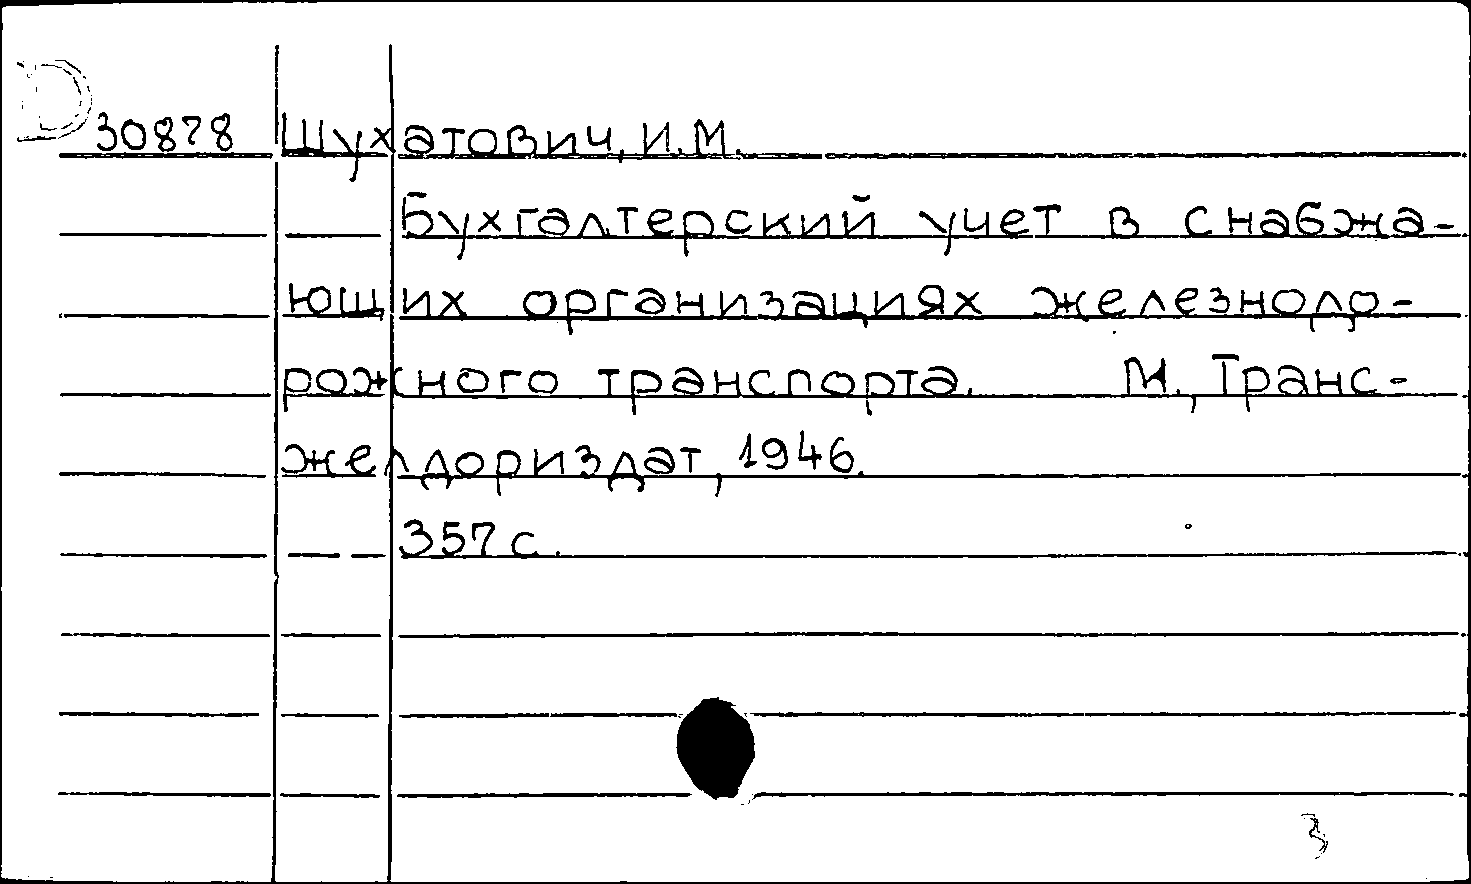 30878 Шухатович, И.М.
Бухгалтерский учет в снабжа-
ющих организациях железнодо-
рожного транспорта. М., Транс-
желдориздат, 1946.
357 с.
3